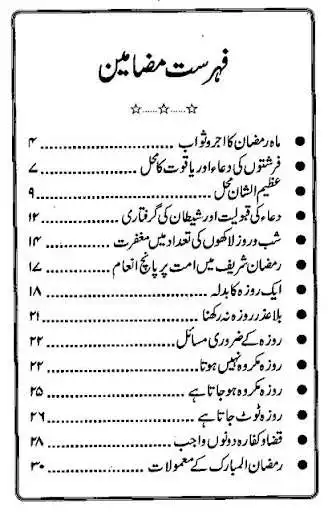 فہرست مضامین
☆......☆......☆
● ماہ رمضان کا اجر و ثواب ........................ ۴
● فرشتوں کی دعاء اور یاقوت کا محل ........................ ۷
● عظیم الشان محل ........................ ۹
● دعاء کی قبولیت اور شیطان کی گرفتاری ........................ ۱۲
● شب و روز لاکھوں کی تعداد میں مغفرت ........................ ۱۴
● رمضان شریف میں امت پر پانچ انعام ........................ ۱۷
● ایک روزہ کا بدلہ ........................ ۱۸
● بلا عذر روزہ نہ رکھنا ........................ ۲۱
● روزہ کے ضروری مسائل ........................ ۲۲
● روزہ مکروہ نہیں ہوتا ........................ ۲۲
● روزہ مکروہ ہو جاتا ہے ........................ ۲۵
● روزہ ٹوٹ جاتا ہے ........................ ۲۶
● قضا و کفارہ دونوں واجب ........................ ۲۸
● رمضان المبارک کے معمولات ........................ ۳۰